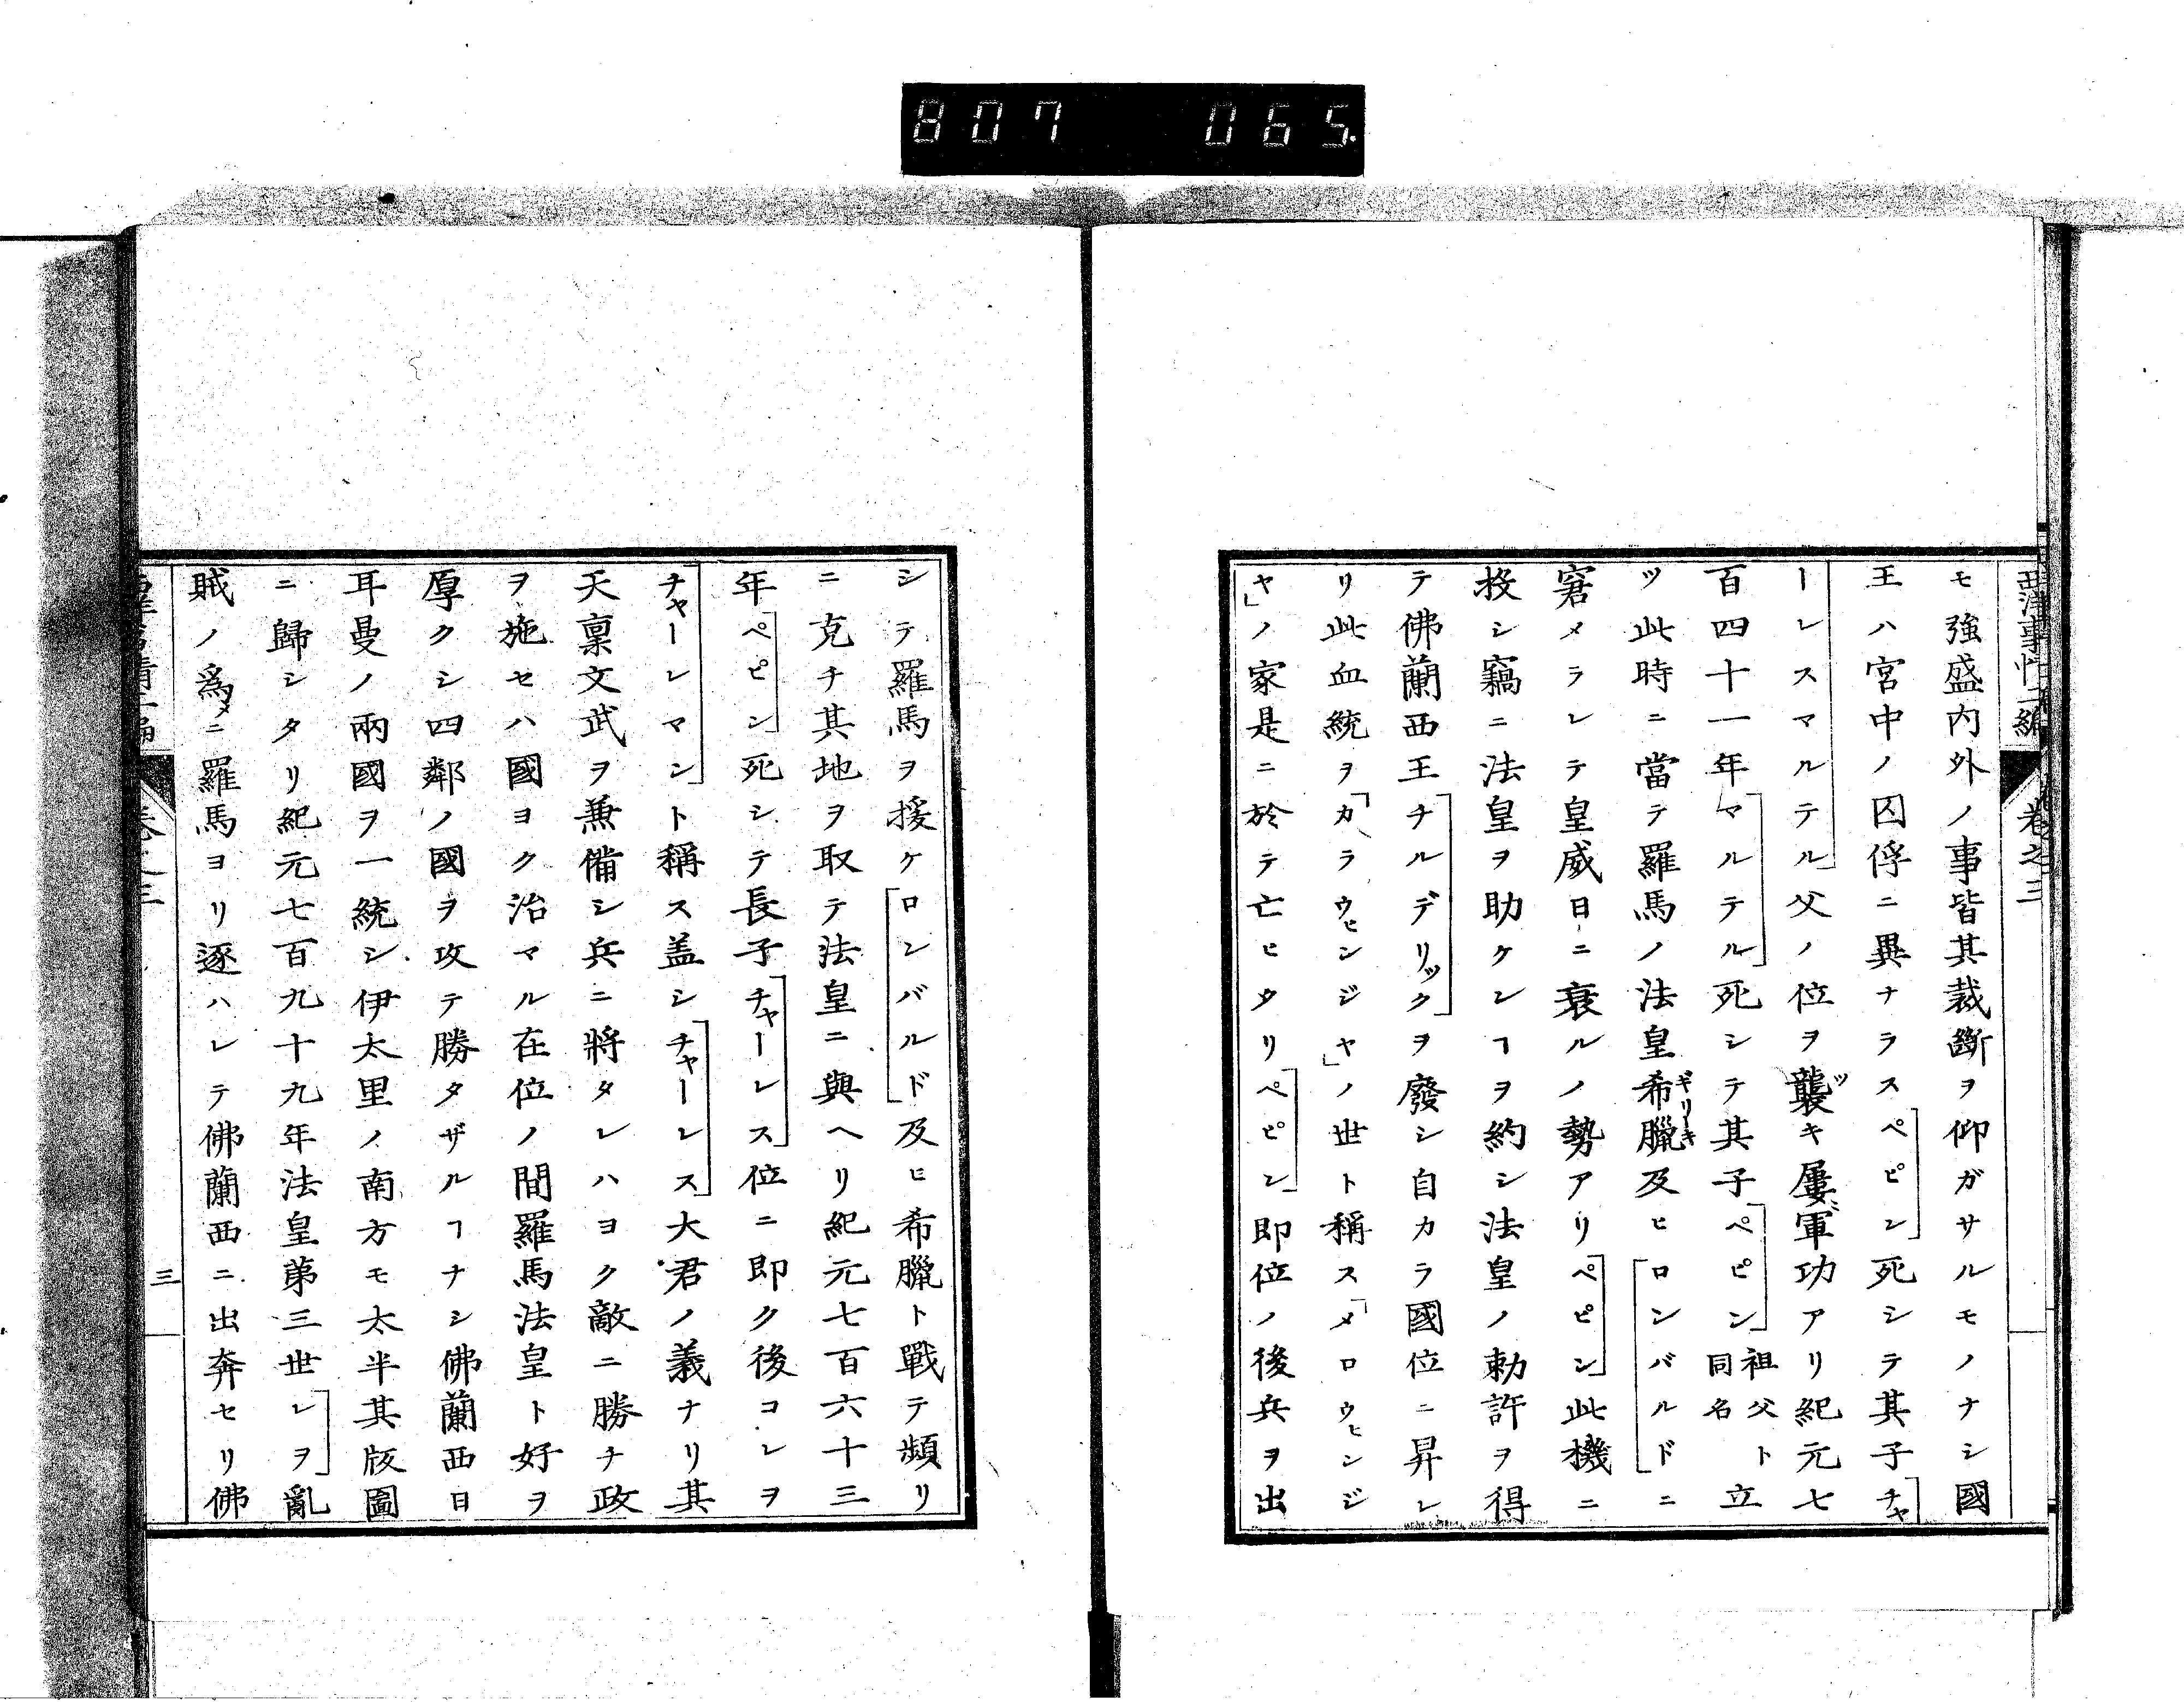 807 065
西洋事情二編 卷之三
モ強盛内外ノ事皆其裁斷ヲ仰ガサルモノナシ國
王ハ宮中ノ囚俘ニ異ナラスペピン死シテ其子チャ
ーレスマルテル父ノ位ヲ襲キ屢軍功アリ紀元七
百四十一年マルテル死シテ其子ペピン祖父ト同名立
ツ此時ニ當テ羅馬ノ法皇希臘及ヒロンバルドニ
窘メラレテ皇威日ニ衰ルノ勢アリペピン此機ニ
投シ竊ニ法皇ヲ助ケンヿヲ約シ法皇ノ勅許ヲ得
テ佛蘭西王チルデリックヲ廢シ自カラ國位ニ昇レ
リ此血統ヲ「カラウヒンジヤ」ノ世ト稱ス「メロウヒンジ
ヤ」ノ家是ニ於テ亡ヒタリペピン即位ノ後兵ヲ出
シテ羅馬ヲ援ケロンバルド及ヒ希臘ト戰テ頻リ
ニ克チ其地ヲ取テ法皇ニ與ヘリ紀元七百六十三
年ペピン死シテ長子チャーレス位ニ即ク後コレヲ
チャーレマント稱ス盖シチャーレス大君ノ義ナリ其
天稟文武ヲ兼備シ兵ニ將タレハヨク敵ニ勝チ政
ヲ施セハ國ヨク治マル在位ノ間羅馬法皇ト好ヲ
厚クシ四鄰ノ國ヲ攻テ勝タザルヿナシ佛蘭西日
耳曼ノ兩國ヲ一統シ伊太里ノ南方モ太半其版圖
ニ歸シタリ紀元七百九十九年法皇第三世レヲ亂
賊ノ爲メニ羅馬ヨリ逐ハレテ佛蘭西ニ出奔セリ佛
卷之三
三